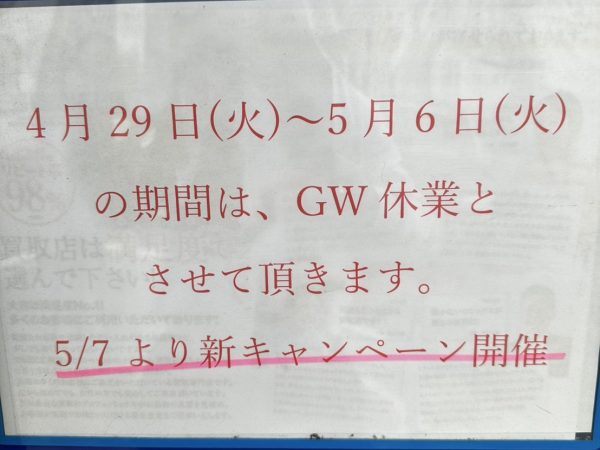 4月29日(火)～5月6日(火)
の期間は、GW休業と
させて頂きます。
5/7より新キャンペーン開催